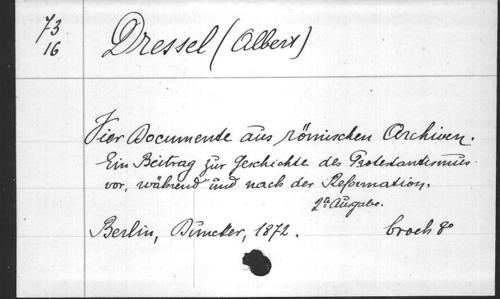 73
16
Dressel (Albert)
Vier Documente aus römischen Archiven.
Ein Beitrag zur Geschichte des Protestantismus
vor, während und nach der Reformation.
2e Ausgabe.
Berlin, Duncker, 1872. broch 8°